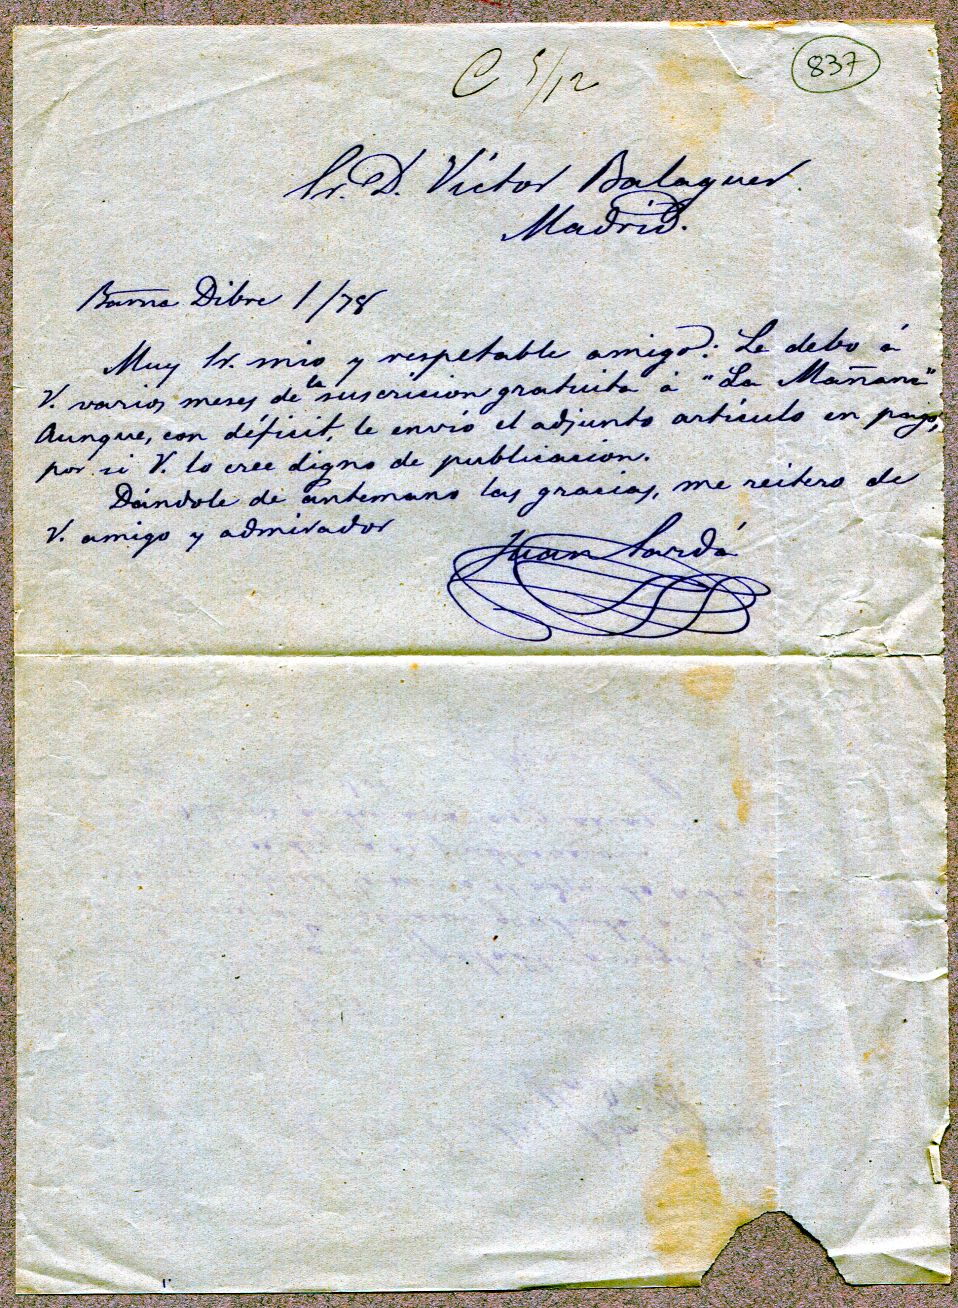 C 5/12
837
Sr. D. Víctor Balaguer.
Madrid.
Barna Dibre 1/78
Muy Sr. mio y respetable amigo: Le debo á
V. varios meses de la suscricion gratuita á "La Mañana"
Aunque, con déficit, le envió el adjunto artículo en pago,
por si V. lo cree digno de publicacion.
Dándole de antemano las gracias, me reitero de
V. amigo y admirador
Juan Sardá